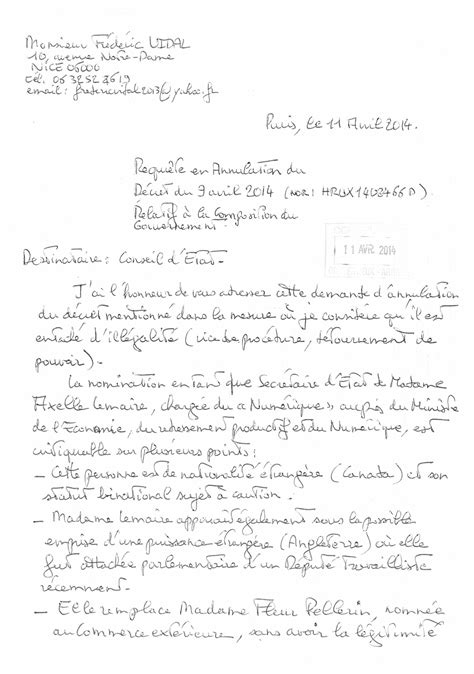 Monsieur Frédéric VIDAL
10, avenue Notre-Dame
NICE 06000
Tél. 06 32 52 3619
email : fredericvidal2013@yahoo.fr
Paris, le 11 Avril 2014.
Requête en Annulation du
Décret du 9 avril 2014 (NOR : HRUX1408466D)
Relatif à la Composition du
Gouvernement.
11 AVR 2014
Destinataire : Conseil d'Etat.
J'ai l'honneur de vous adresser cette demande d'annulation
du décret mentionné dans la mesure où je considère qu'il est
entaché d'illégalité (vice de procédure, détournement de
pouvoir).
La nomination en tant que Secrétaire d'Etat de Madame
Axelle Lemaire, chargée du « Numérique » auprès du Ministre
de l'Economie, du redressement productif et du Numérique, est
critiquable sur plusieurs points :
- Cette personne est de nationalité étrangère (Canada) et son
statut binational sujet à caution.
- Madame Lemaire apparaît également sous la possible
emprise d'une puissance étrangère (Angleterre) où elle
fut attachée parlementaire d'un Député Travailliste
récemment.
- Elle remplace Madame Fleur Pellerin, nommée
au Commerce extérieure, sans avoir la légitimité